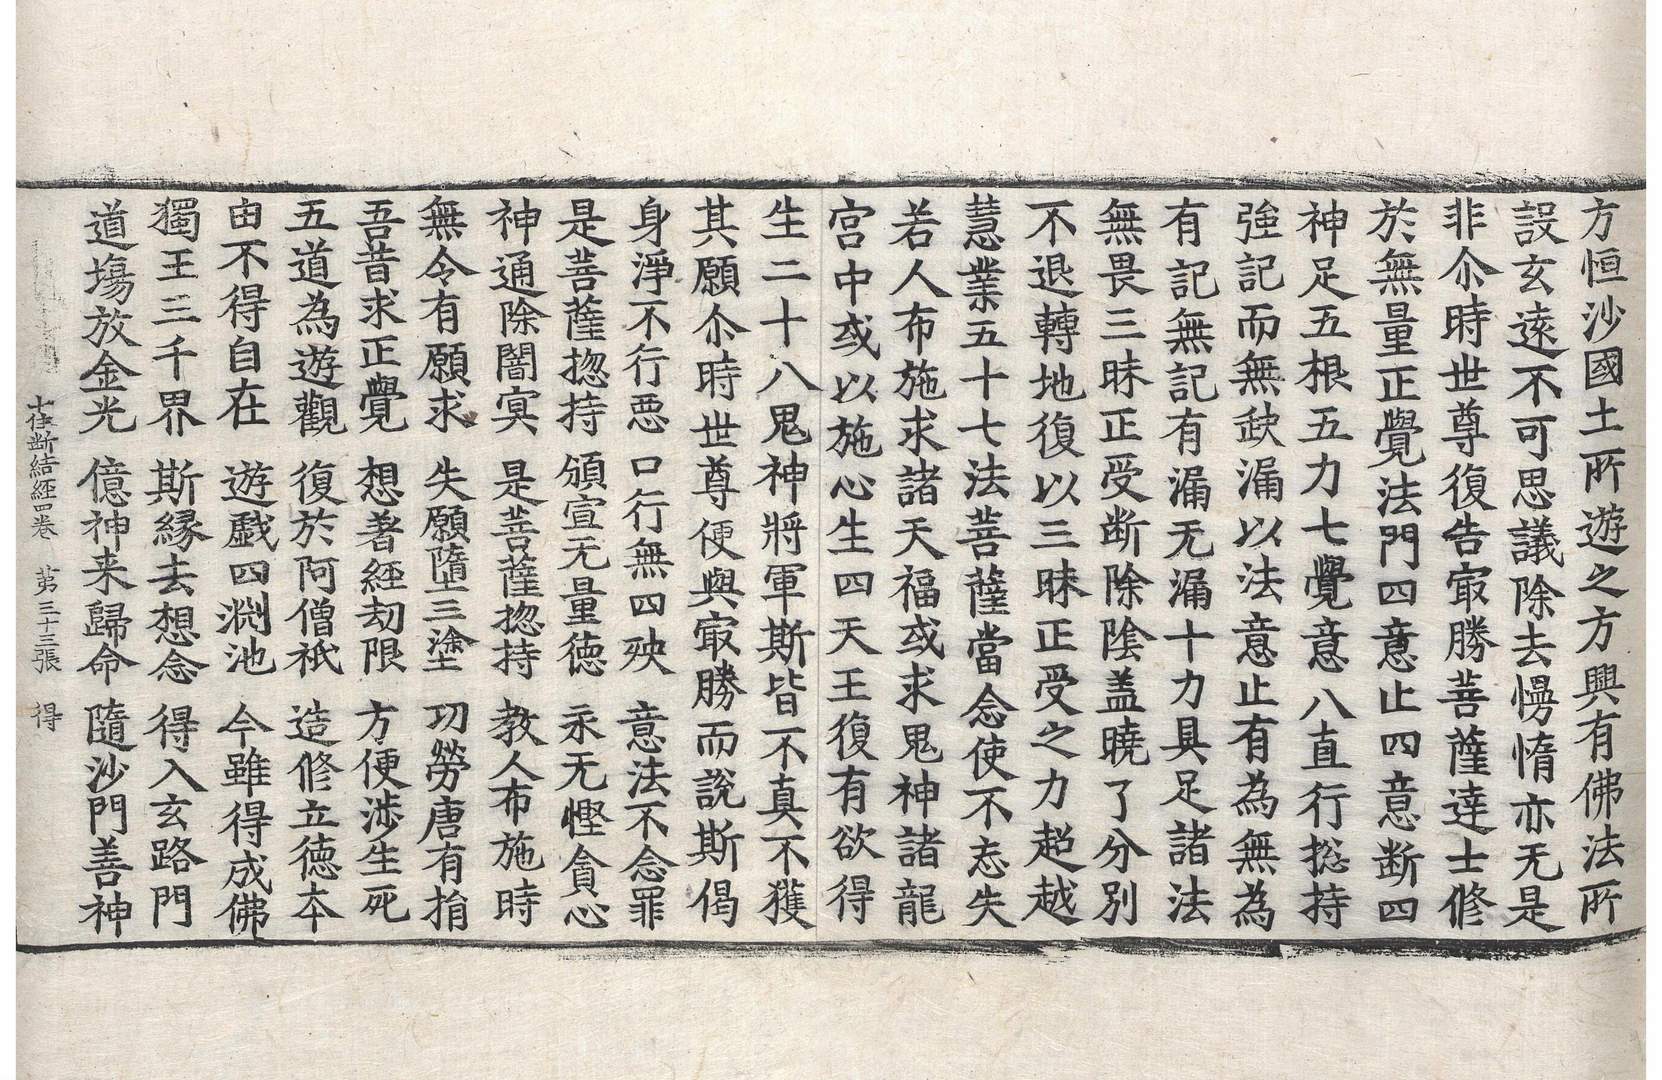 方恒沙國土所遊之方興有佛法所
設玄遠不可思議除去慢惰亦无是
非尒時世尊復告㝡勝菩薩達士修
於無量正覺法門四意止四意断四
神足五根五力七覺意八直行揔持
強記而無缺漏以法意止有為無為
有記無記有漏无漏十力具足諸法
無畏三昧正受断除陰盖曉了分別
不退轉地復以三昧正受之力超越
慧業五十七法菩薩當念使不忘失
若人布施求諸天福或求鬼神諸龍
宫中或以施心生四天王復有欲得
生二十八鬼神將軍斯皆不真不獲
其願尒時世尊便與㝡勝而說斯偈
身淨不行惡 口行無四殃 意法不念罪
是菩薩揔持 頒宣无量徳 永无慳貪心
神通除闇冥 是菩薩揔持 教人布施時
無令有願求 失願墮三塗 功勞唐有捐
吾昔求正覺 想著經劫限 方便渉生死
五道為遊觀 復於阿僧祇 造修立德本
由不得自在 遊戱四渕池 今雖得成佛
獨王三千界 斯縁去想念 得入玄路門
道塲放金光 億神来歸命 隨沙門善神
十住断結經四卷 第三十三張 得